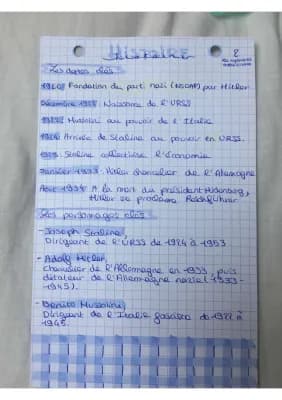 Histoire
2
Les dates clés
1920 Fondation du parti nazi (NSDAP) par Hitler
Décembre 1922 Naissance de l'URSS
1922 Mussolini au pouvoir de l'Italie
1924 Arrivée de Staline au pouvoir en URSS.
1929 Staline collectivise l'économie
Janvier 1933 Hitler chancelier de l'Allemagne
Aout 1934 A la mort du président Hidenburg,
Hitler se proclame Reichführer
Les personnages clés
- Joseph Staline,
Dirigeant de l'URSS de 1924 à 1953
- Adolf Hitler,
chancelier de l'Allemagne en 1933, puis
dictateur de l'Allemagne nazie (1933-
1945).
- Benito Mussolini,
Dirigeant de l'Italie fasciste de 1922 à
1945.